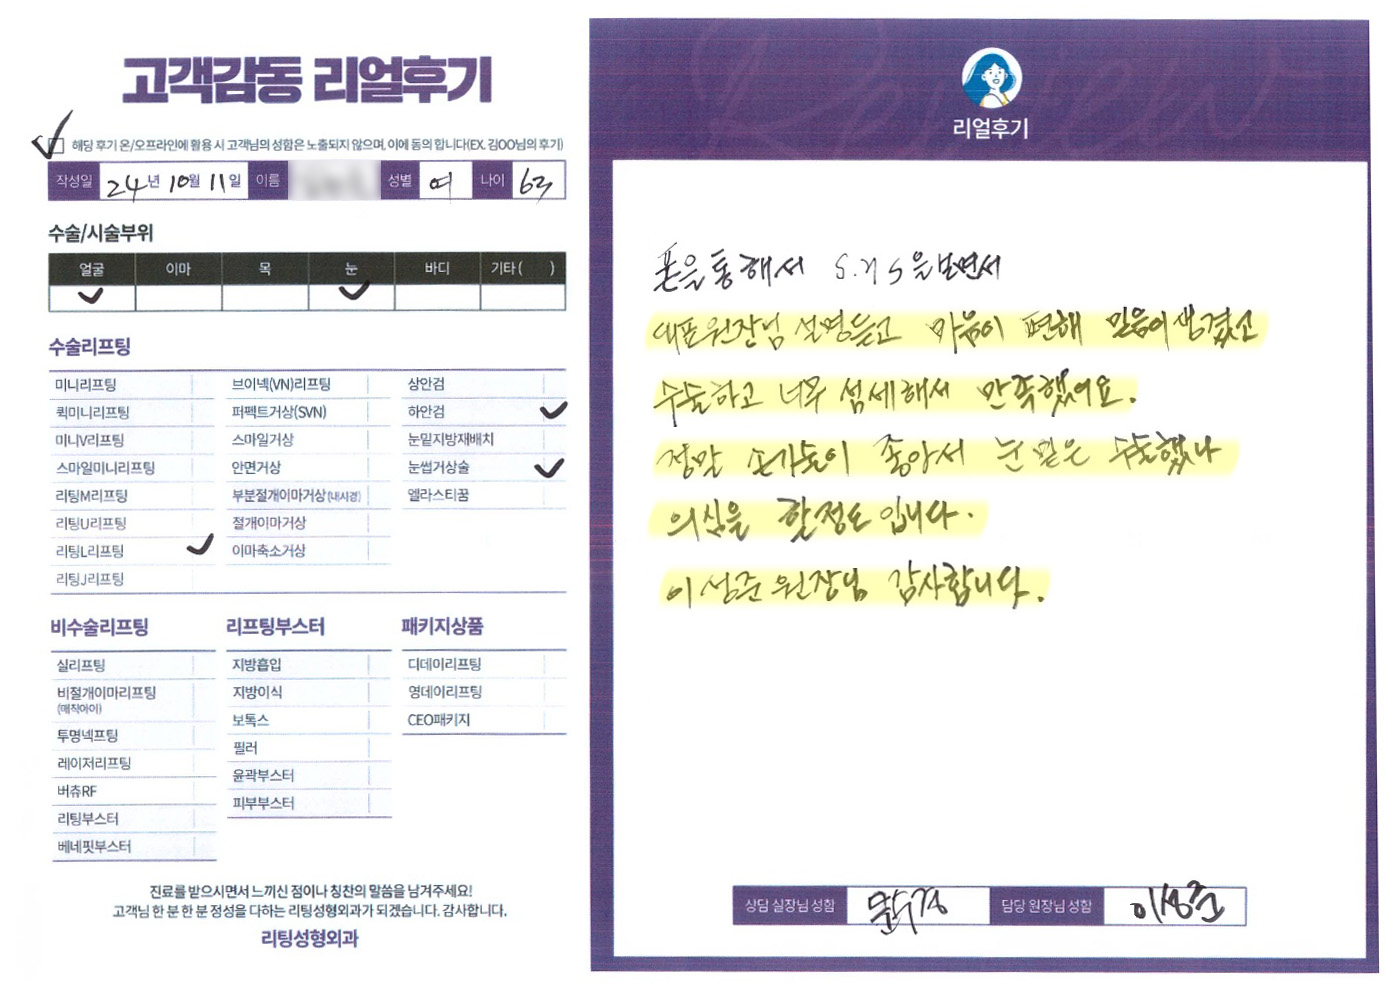 고객감동 리얼후기
해당 후기 온/오프라인에 활용 시 고객님의 성함은 노출되지 않으며, 이에 동의 합니다(EX. 김OO님의 후기)
작성일 24년 10월 11일 이름 성별 여 나이 63
수술/시술부위
얼굴 이마 목 눈 바디 기타 ( )
수술리프팅
미니리프팅 브이넥(VN)리프팅 상안검
퀵미니리프팅 퍼펙트거상(SVN) 하안검
미니V리프팅 스마일거상 눈밑지방재배치
스마일미니리프팅 안면거상 눈썹거상술
리팅M리프팅 부분절개이마거상(내시경) 엘라스티꿈
리팅U리프팅 절개이마거상
리팅L리프팅 이마축소거상
리팅J리프팅
비수술리프팅 리프팅부스터 패키지상품
실리프팅 지방흡입 디데이리프팅
비절개이마리프팅 지방이식 영데이리프팅
(매직아이)
투명넥프팅 보톡스 CEO패키지
레이저리프팅 필러
버츄RF 윤곽부스터
리팅부스터 피부부스터
베네핏부스터
진료를 받으시면서 느끼신 점이나 칭찬의 말씀을 남겨주세요!
고객님 한 분 한 분 정성을 다하는 리팅성형외과가 되겠습니다. 감사합니다.
리팅성형외과
리얼후기
폰을 통해서 을 보면서
대표원장님 설명듣고 마음이 편해 믿음이 생겼고
수술하고 너무 섬세해서 만족했어요.
정말 손기술이 좋아서 눈 밑은 수술했나
의심을 할정도 입니다.
이성준 원장님 감사합니다.
상담 실장님 성함 문수경 담당 원장님 성함 이성준